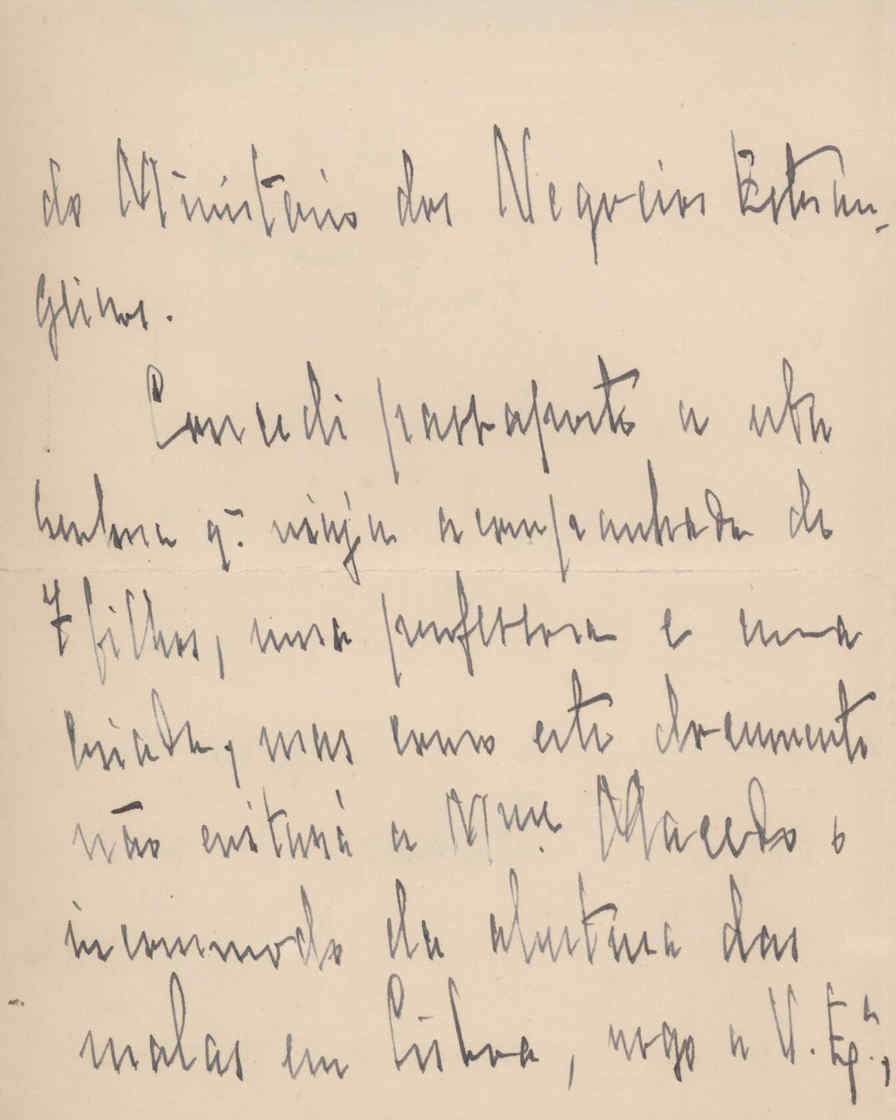 do Ministerio dos Negocios Estran-
geiros.
Concedi passaporte a esta
senhora q. viaja acompanhada de
7 filhos, uma professora e uma
criada, mas como este documento
não evitará a Mme. Macedo o
incommodo da abertura das
malas em Lisboa, rogo a V. Exª.,